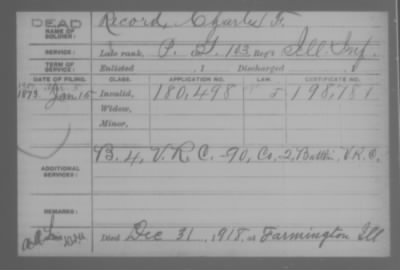 DEAD
NAME OF SOLDIER: Record, Charles F.
SERVICE: Late rank, P. G. 103 Reg't Ill Inf.
TERM OF SERVICE: Enlisted , 1 Discharged , 1
DATE OF FILING. CLASS. APPLICATION NO. LAW. CERTIFICATE NO.
1873 Jan 15 Invalid, 180,498 198,781
Widow,
Minor,
ADDITIONAL SERVICES: B. 4, V. R. C. - 90, Co. 2, Batt'n, V. R. C.
REMARKS:
Died Dec 31, 1918, at Farmington Ill